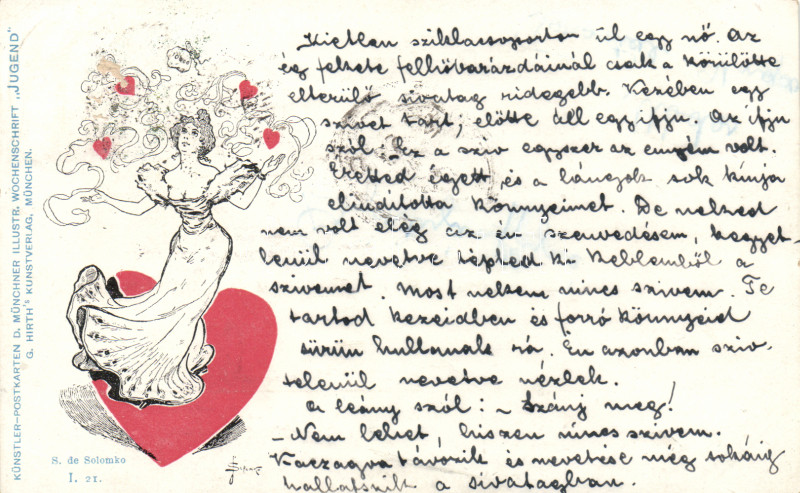 KÜNSTLER-POSTKARTEN D. MÜNCHNER ILLUSTR. WOCHENSCHRIFT „JUGEND"
G. HIRTH's KUNSTVERLAG, MÜNCHEN.
Kietlen sziklacsoporton ül egy nő. Az
ég fekete felhőbarázdáinál csak a körülötte
elterülő sivatag ridegebb. Kezében egy
szivet tart, előtte áll egy ifju. Az ifju
szól: Ez a sziv egyszer az enyém volt.
Éretted égett és a lánczok sok kinja
elinditotta könnyeimet. De neked
nem volt elég az én szenvedésem, kegyet-
lenül nevetve tépted ki keblemből a
szivemet. Most nekem nincs szivem. Te
tartod kezeidben és forró könnyeid
sürün hullanak rá. Én azonban sziv-
telenül nevetve nézlek.
A leány szól: - Szánj meg!
- Nem lehet, hiszen nincs szivem.
Kaczagva távozik és nevetése még sokáig
hallatszik a sivatagban.
S. de Solomko
I. 21.